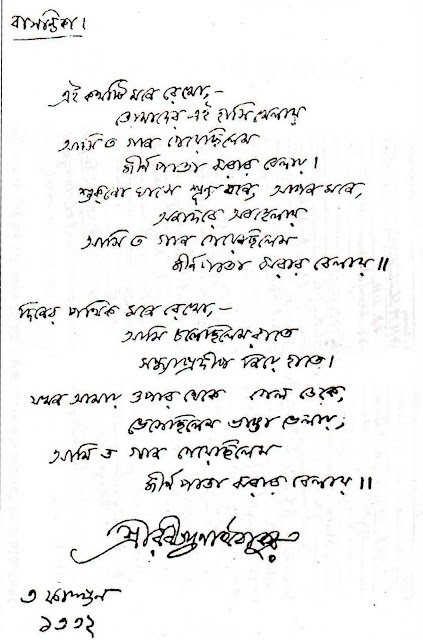 বাসন্তিকা।
এই কথাটি মনে রেখো,—
তোমাদের এই হাসি খেলায়
আমি ত গান গেয়েছিলেম
জীর্ণ পাতা ঝরার বেলায়।
শুক্‌নো ঘাসে শূন্য বনে, আপন মনে,
অনাদরে অবহেলায়
আমি ত গান গেয়েছিলেম
জীর্ণ পাতা ঝরার বেলায়॥
দিনের পথিক মনে রেখো,—
আমি চলেছিলেম রাতে
সন্ধ্যাপ্রদীপ নিয়ে হাতে।
যখন আমায় ওপার থেকে গেল ডেকে,
ভেসেছিলেম ভাঙা ভেলায়;
আমি ত গান গেয়েছিলেম
জীর্ণ পাতা ঝরার বেলায়॥
শ্রীরবীন্দ্রনাথ ঠাকুর
৩ ফাল্গুন
১৩৩২